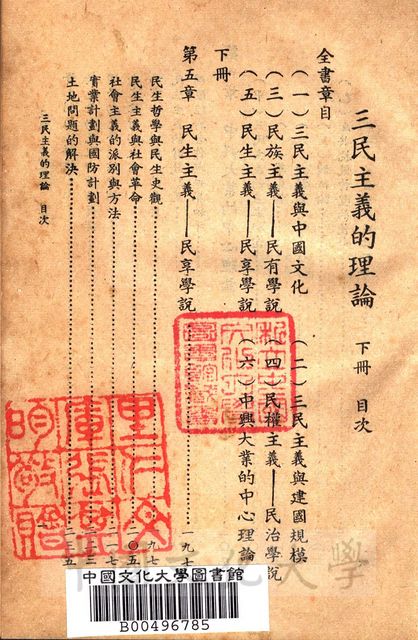 三民主義的理論 下冊 目次
全書章目
(一)三民主義與中國文化 (二)三民主義與建國規模
(三)民族主義——民有學說 (四)民權主義——民治學說
(五)民生主義——民享學說 (六)中興大業的中心理論
下冊
第五章 民生主義——民享學說……一九七
民生哲學與民生史觀……九七
民生主義與社會革命……二〇五
社會主義的派別與方法
實業計劃與國防計劃
土地問題的解決
三民主義的理論 目次
中國文化大學圖書館
B00496785